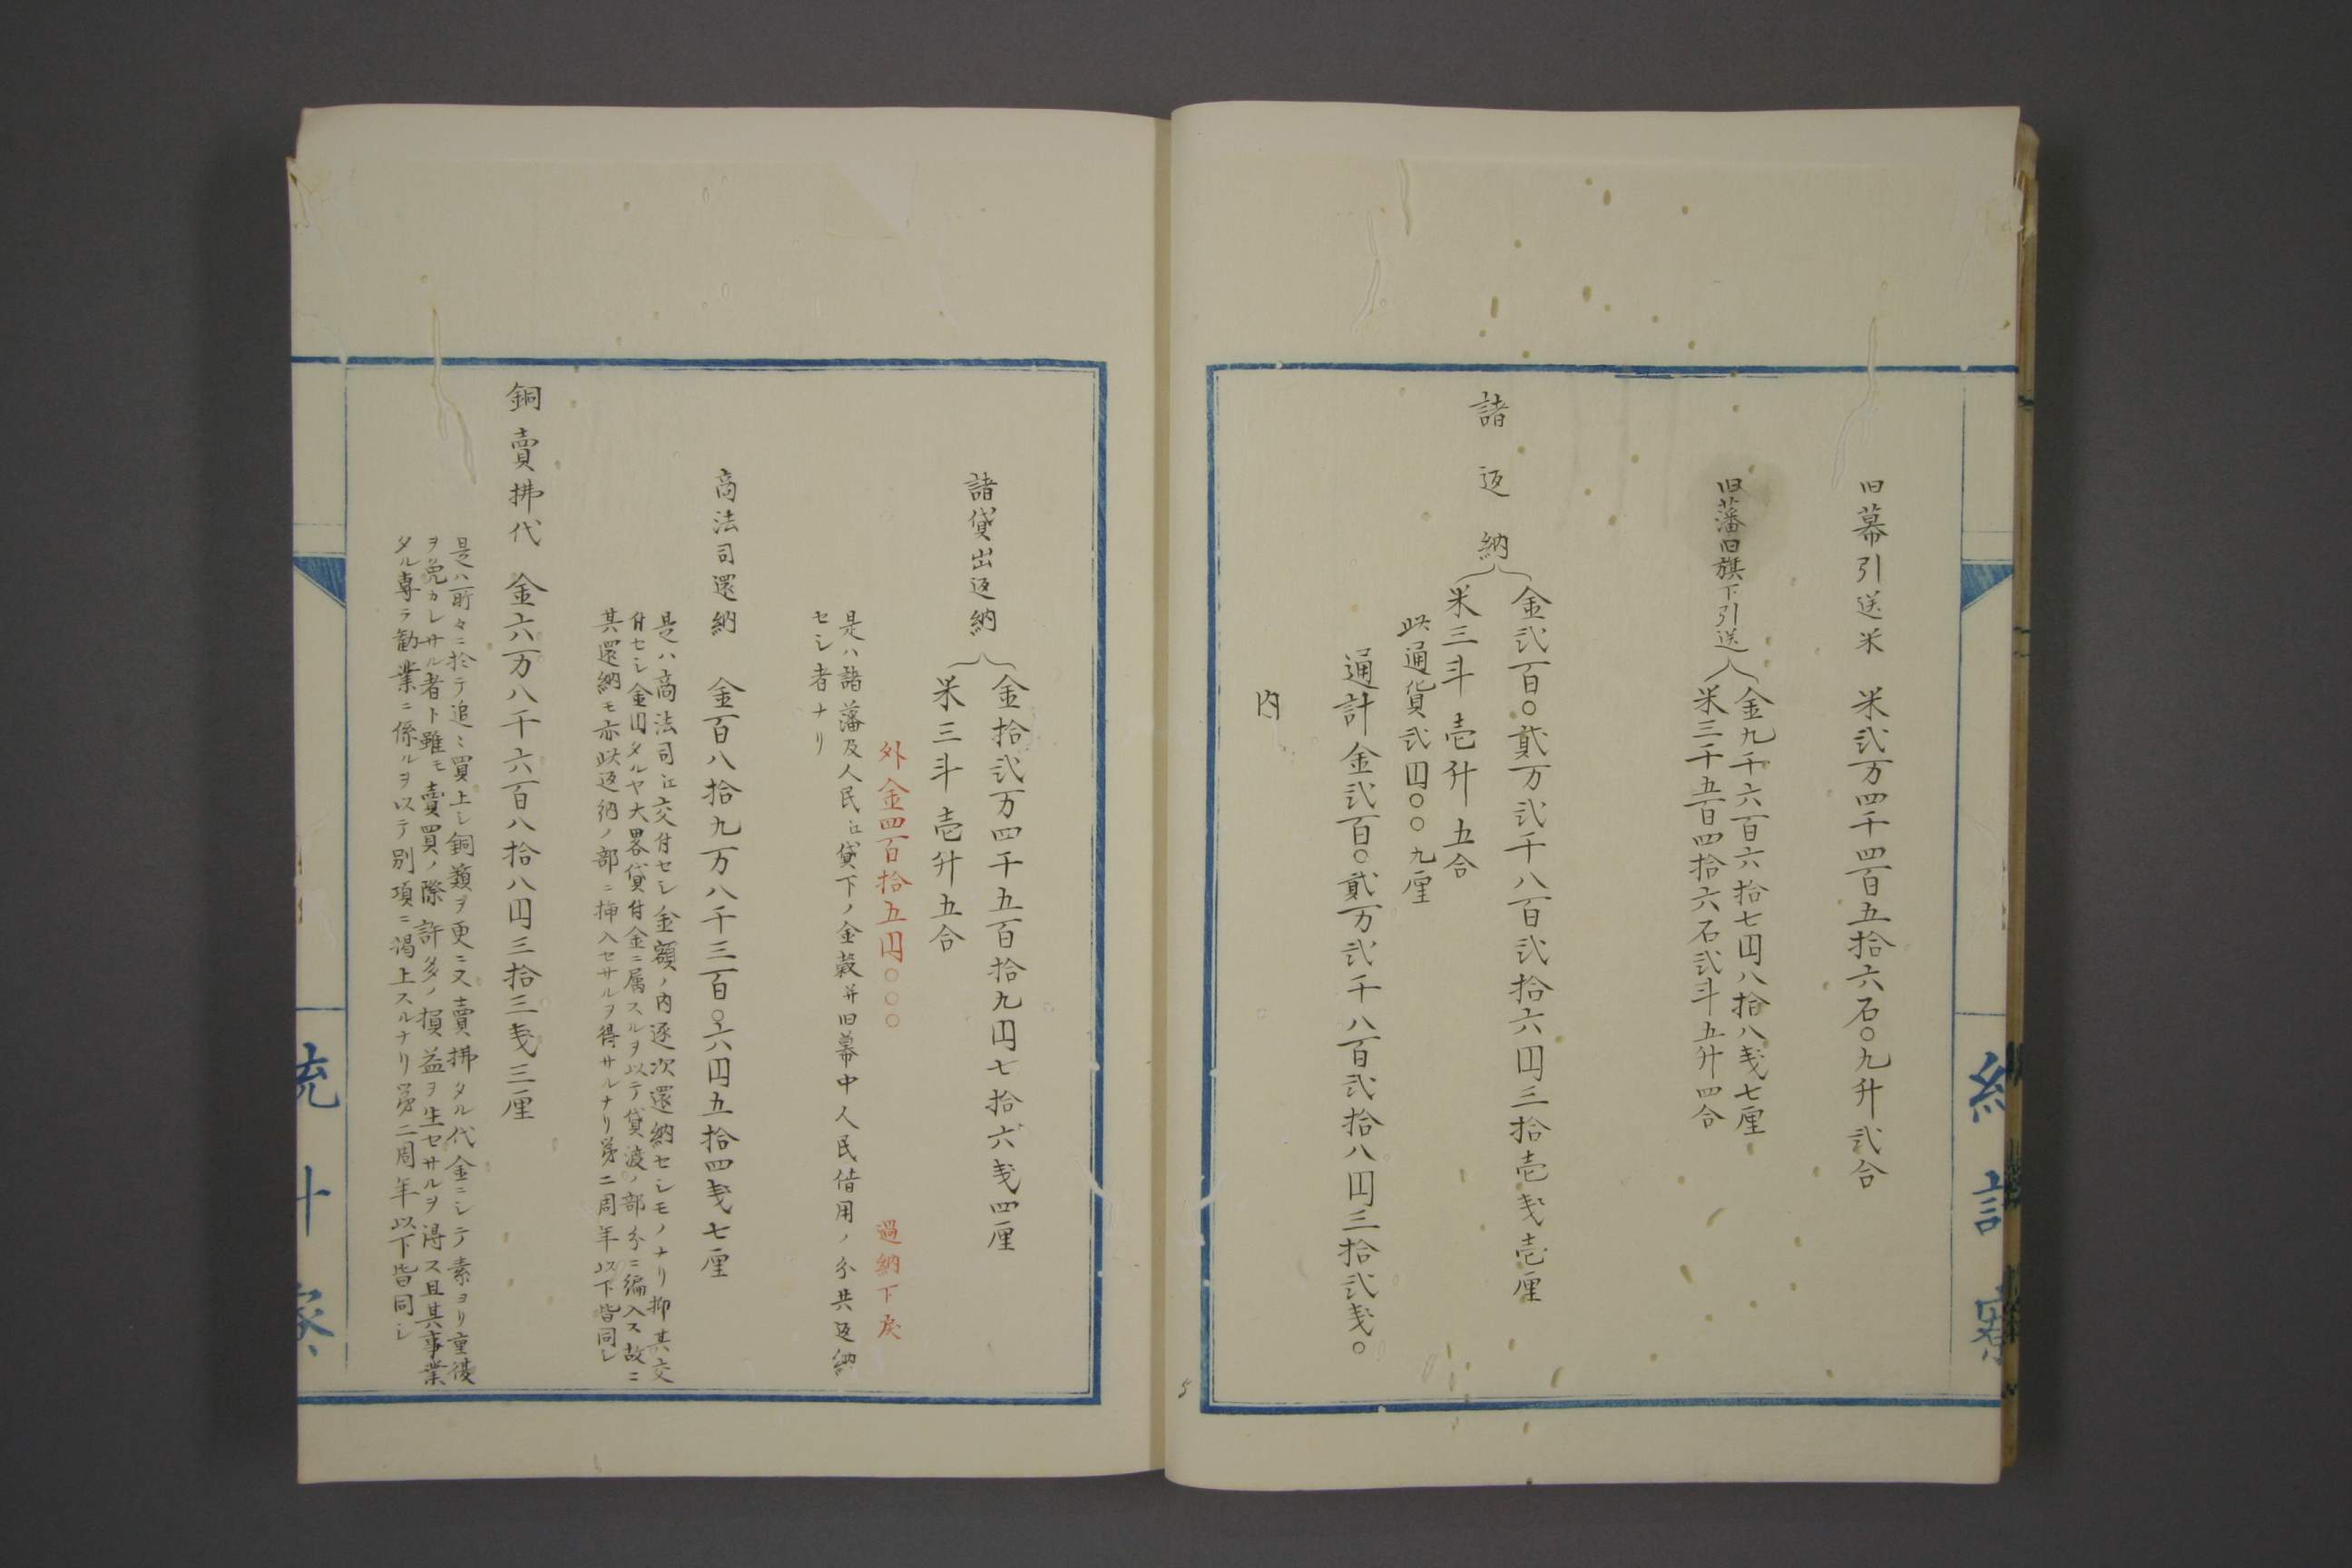 旧幕引送米　米弐万四千四百五拾六石〇九升弐合
旧藩旧旗下引送
金九千六百六拾七円八拾八戔七厘
米三千五百四拾六石弐斗五升四合
諸返納
金弐百〇貳万弐千八百弐拾六円三拾壱戔壱厘
米三斗壱升五合
此通貨弐円〇〇九厘
通計金弐百〇貳万弐千八百弐拾八円三拾弐戔〇
内
諸貸出返納
金拾弐万四千五百拾九円七拾六戔四厘
米三斗壱升五合
外金四百拾五円〇〇〇　過納下戻
是ハ諸藩及人民江貸下ノ金穀并旧幕中人民借用ノ分共返納
セシ者ナリ
商法司還納　金百八拾九万八千三百〇六円五拾四戔七厘
是ハ商法司江交付セシ金額ノ内逐次還納セシモノナリ抑其交
付セシ金円タルヤ大畧貸付金ニ属スルヲ以テ貸渡ノ部分ニ編入ス故ニ
其還納モ亦此返納ノ部ニ挿入セサルヲ得サルナリ第二周年以下皆同シ
銅賣拂代　金六万八千六百八拾八円三拾三戔三厘
是ハ所々ニ於テ追々買上シ銅類ヲ更ニ又賣拂タル代金ニシテ素ヨリ重複
ヲ免カレサル者ト雖モ賣買ノ際許多ノ損益ヲ生セサルヲ得ス且其事業
タル専ラ勧業ニ係ルヲ以テ別項ニ掲上スルナリ第二周年以下皆同シ
統計寮
5